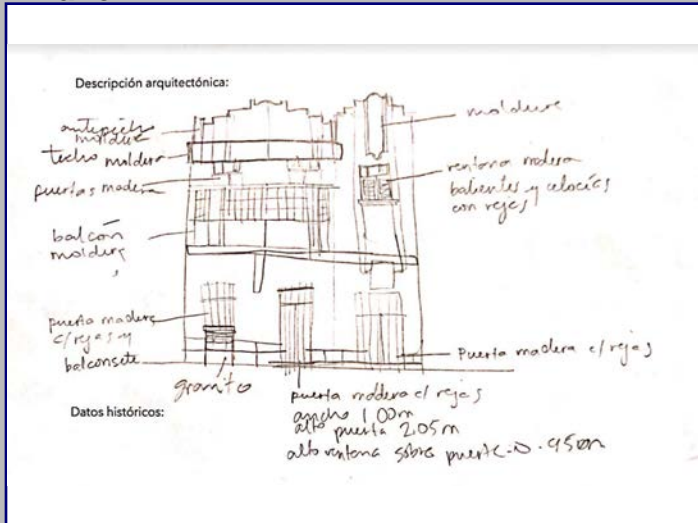 Descripción arquitectónica:
antepecho
moldura
techo moldera
puertas madera
balcón
moldura
puerta madera
c/rejas y
balconsete
granito
moldura
ventana madera
batientes y celocías
con rejas
Puerta madera c/ rejas
puerta madera c/ rejas
ancho 1.00m
alto puerta 2.05m
alto ventana sobre puerta
Datos históricos: